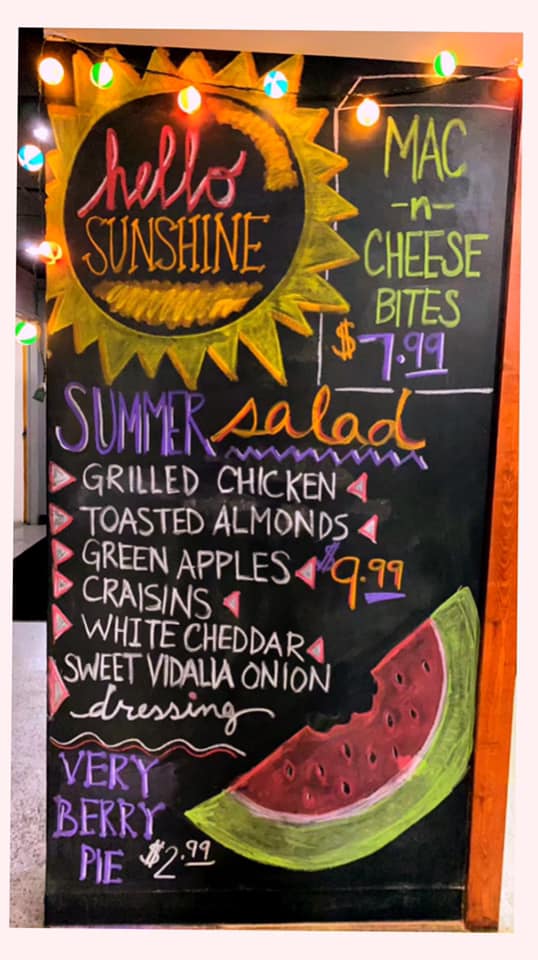 hello
SUNSHINE
MAC
-n-
CHEESE
BITES
$7.99
SUMMER salad
GRILLED CHICKEN
TOASTED ALMONDS
GREEN APPLES
$9.99
CRAISINS
WHITE CHEDDAR
SWEET VIDALIA ONION
dressing
VERY
BERRY
PIE $2.99